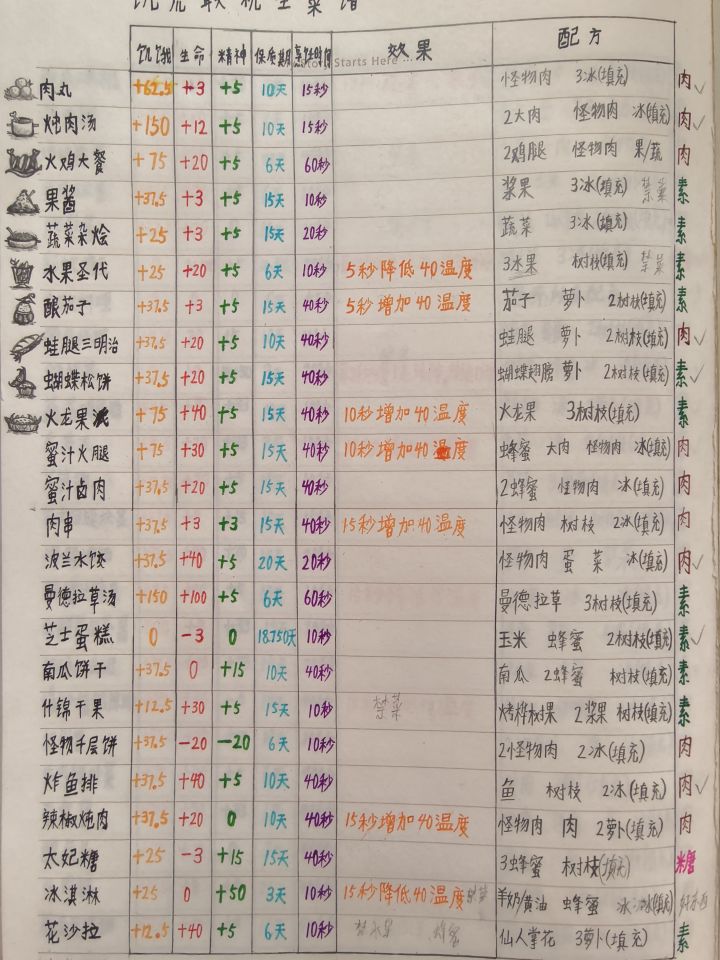 饥荒联机主菜谱
饥饿 生命 精神 保质期 烹饪时间 效果 配方
Story Starts Here ...
肉丸 +62.5 +3 +5 10天 15秒 怪物肉 3冰(填充) 肉✓
炖肉汤 +150 +12 +5 10天 15秒 2大肉 怪物肉 冰(填充) 肉✓
火鸡大餐 +75 +20 +5 6天 60秒 2鸡腿 怪物肉 果/蔬 肉
果酱 +37.5 +3 +5 15天 10秒 浆果 3冰(填充) 禁菜 素
蔬菜杂烩 +25 +3 +5 15天 20秒 蔬菜 3冰(填充) 素
水果圣代 +25 +20 +5 6天 10秒 5秒降低40温度 3水果 树枝(填充) 禁菜 素
酿茄子 +37.5 +3 +5 15天 40秒 5秒增加40温度 茄子 萝卜 2树枝(填充) 素
蛙腿三明治 +37.5 +20 +5 10天 40秒 蛙腿 萝卜 2树枝(填充) 肉✓
蝴蝶松饼 +37.5 +20 +5 15天 40秒 蝴蝶翅膀 萝卜 2树枝(填充) 素✓
火龙果派 +75 +40 +5 15天 40秒 10秒增加40温度 火龙果 3树枝(填充) 素
蜜汁火腿 +75 +30 +5 15天 40秒 10秒增加40温度 蜂蜜 大肉 怪物肉 冰(填充) 肉
蜜汁卤肉 +37.5 +20 +5 15天 40秒 2蜂蜜 怪物肉 冰(填充) 肉
肉串 +37.5 +3 +3 15天 40秒 15秒增加40温度 怪物肉 树枝 2冰(填充) 肉
波兰水饺 +37.5 +40 +5 20天 20秒 怪物肉 蛋 菜 冰(填充) 肉✓
曼德拉草汤 +150 +100 +5 6天 60秒 曼德拉草 3树枝(填充) 素
芝士蛋糕 0 -3 0 18.750天 10秒 玉米 蜂蜜 2树枝(填充) 素✓
南瓜饼干 +37.5 0 +15 10天 40秒 南瓜 2蜂蜜 树枝(填充) 素
什锦干果 +12.5 +30 +5 15天 10秒 禁菜 烤桦树果 2浆果 树枝(填充) 素
怪物千层饼 +37.5 -20 -20 6天 10秒 2怪物肉 2冰(填充) 肉
炸鱼排 +37.5 +40 +5 10天 40秒 鱼 树枝 2冰(填充) 肉✓
辣椒炖肉 +37.5 +20 0 10天 40秒 15秒增加40温度 怪物肉 肉 2萝卜(填充) 肉
太妃糖 +25 -3 +15 15天 40秒 3蜂蜜 树枝(填充) 糖
冰淇淋 +25 0 +50 3天 10秒 15秒降低40温度 羊奶/黄油 蜂蜜 冰 冰(填充)
花沙拉 +12.5 +40 +5 6天 10秒 仙人掌花 3萝卜(填充) 素